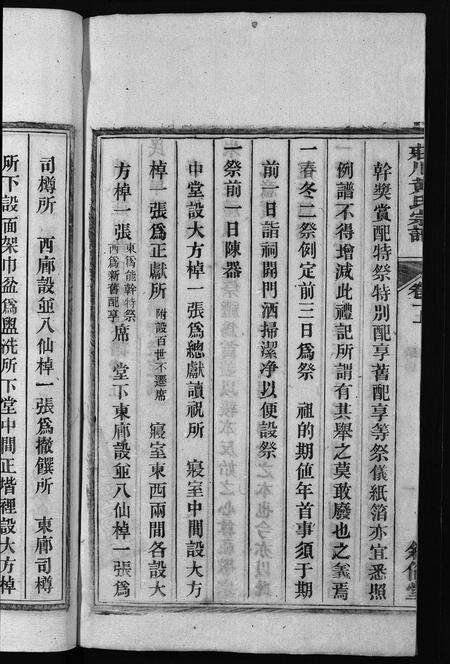 東川黃氏宗譜 卷二
幹獎賞配特祭特別配享舊配享等祭儀紙箔亦宜悉照
例譜不得增減此禮記所謂有其舉之莫敢廢也之義焉
一春冬二祭例定前三日爲祭 祖的期值年首事須于期
前一日詣祠開門洒掃潔净以便設祭
一祭前一日陳器
中堂設大方棹一張爲總獻讀祝所 寢室中間設大方
棹一張爲正獻所 附設百世不遷席 寢室東西兩間各設大
方棹一張 東爲能幹特祭 西爲新舊配享 席 堂下東廊設並八仙棹一張爲
司樽所 西廊設並八仙棹一張爲撤饌所 東廊司樽
所下設面架巾盆爲盥洗所下堂中間正堦裡設大方棹